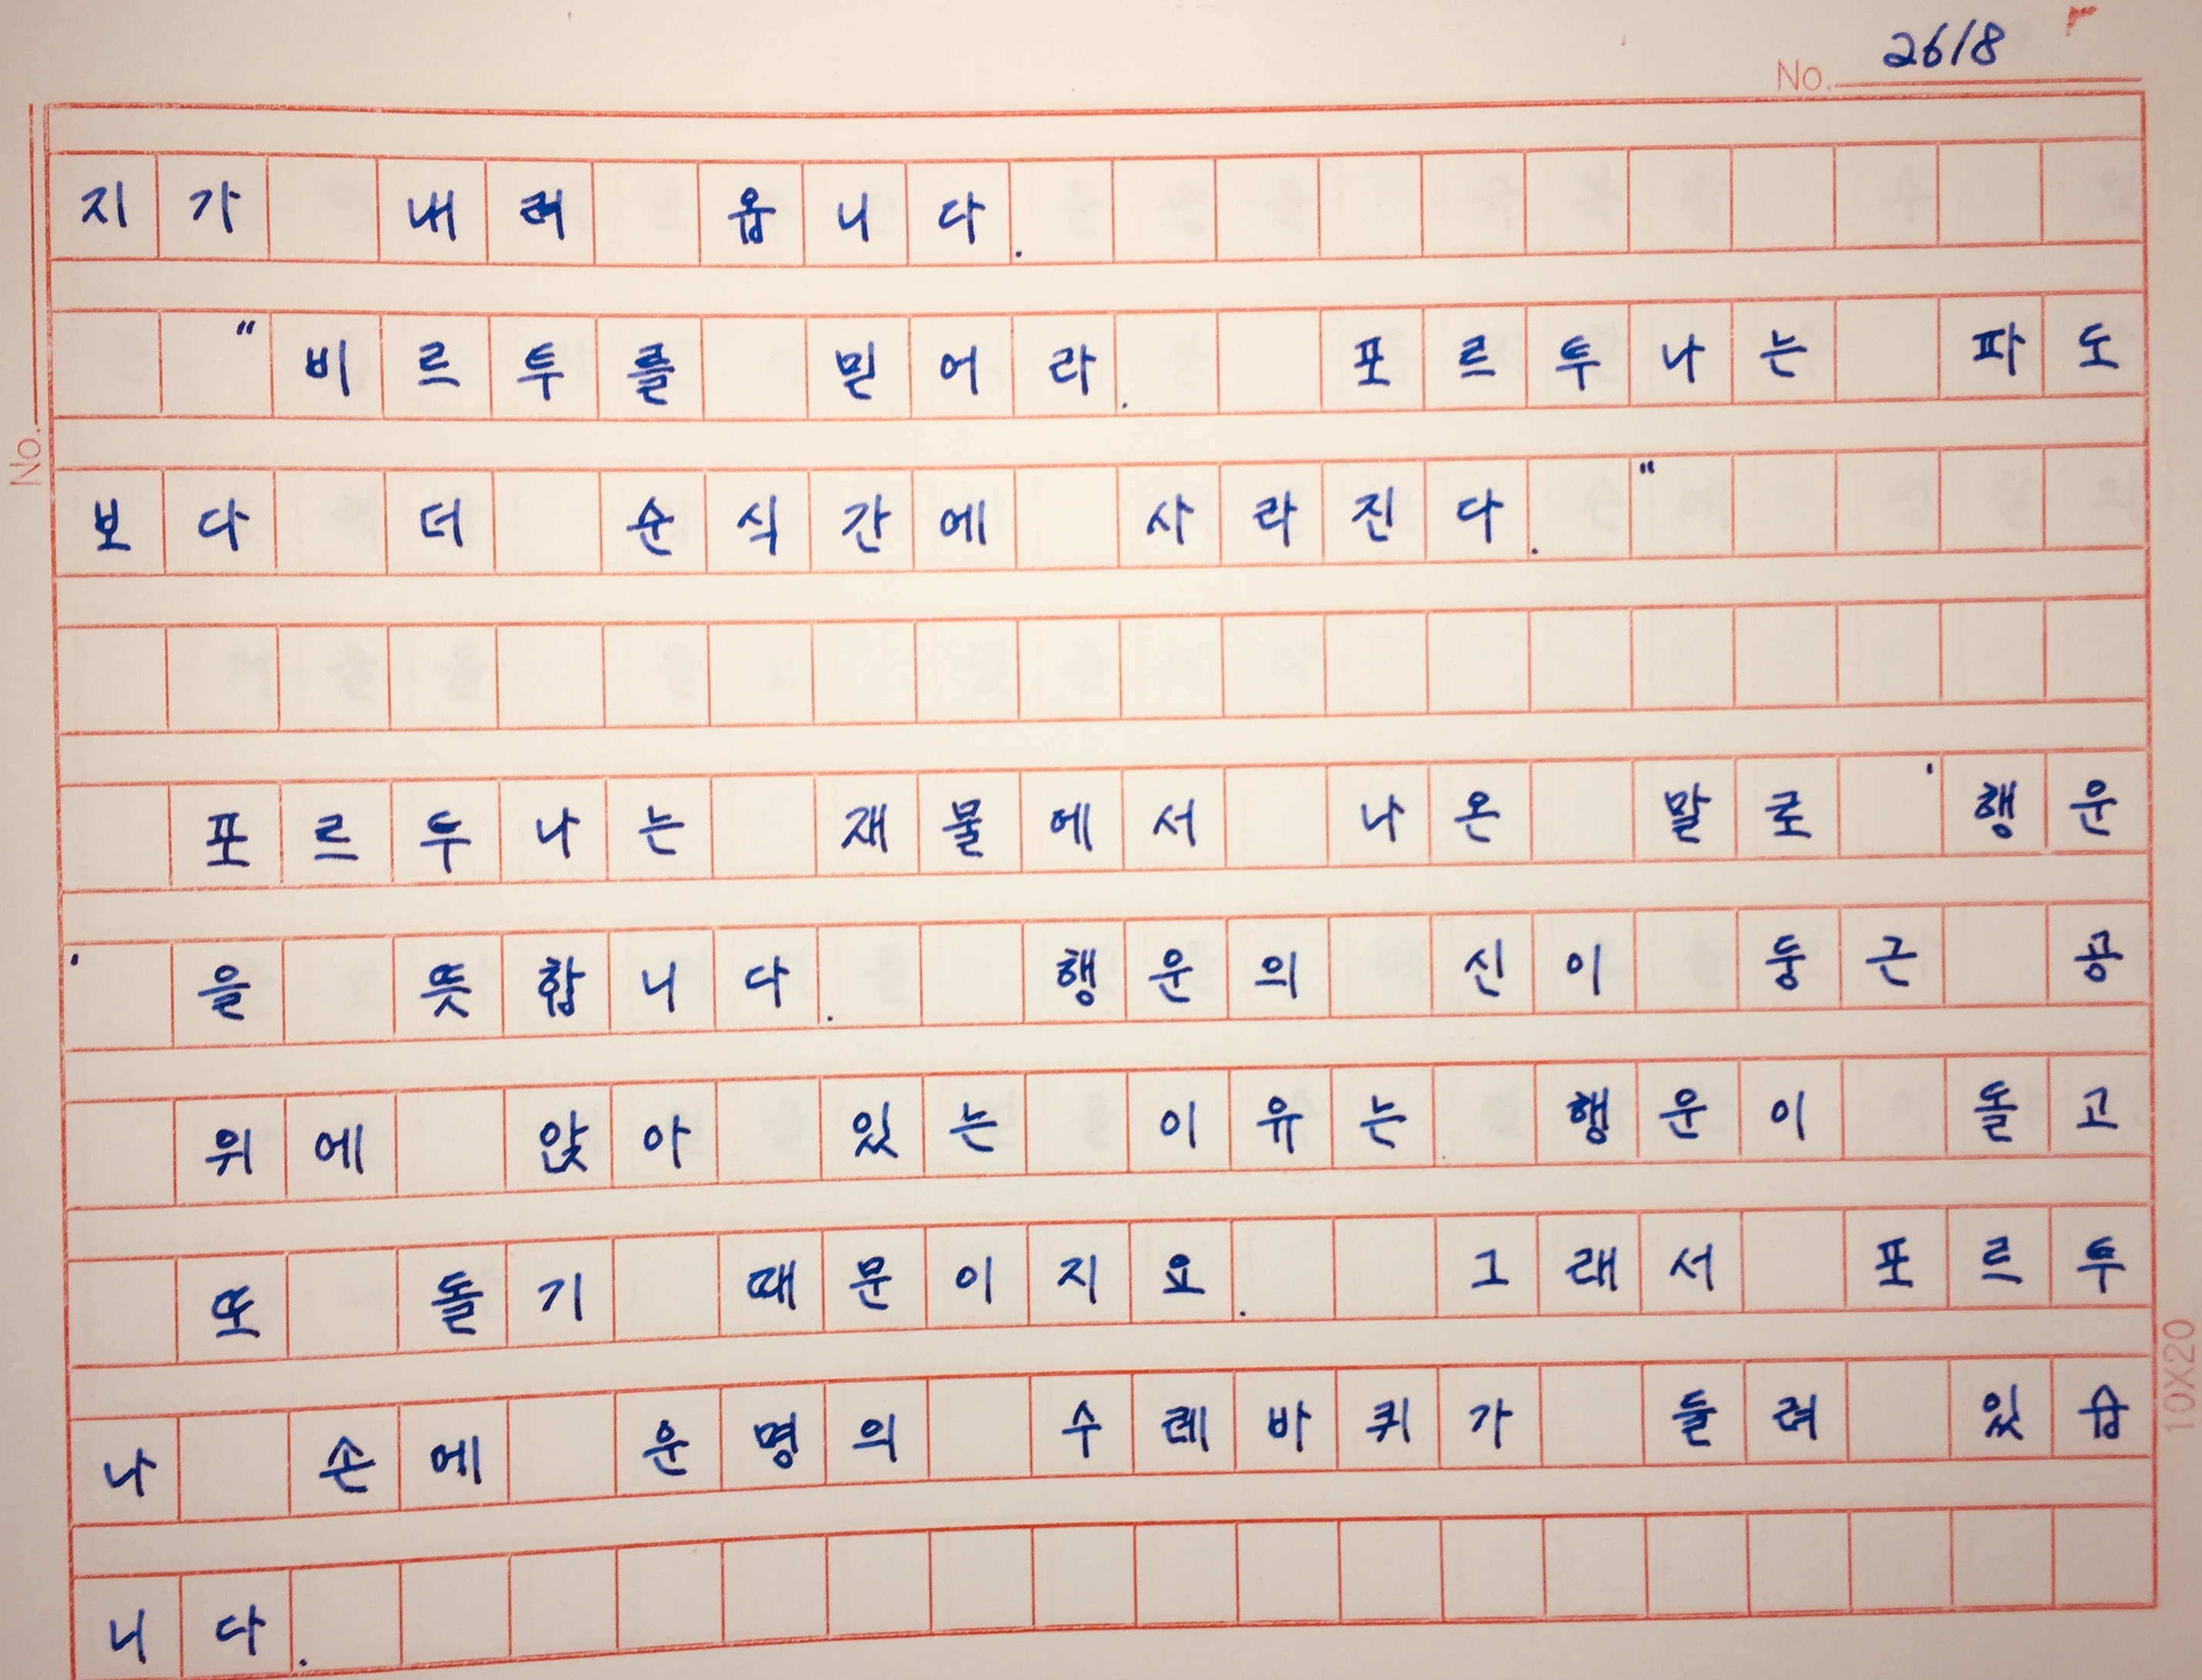 No. 2618
지가 내려 옵니다.
"비르투를 믿어라. 포르투나는 파도
보다 더 순식간에 사라진다."
포르투나는 재물에서 나온 말로 '행운
'을 뜻합니다. 행운의 신이 둥근 공
위에 앉아 있는 이유는 행운이 돌고
또 돌기 때문이지요. 그래서 포르투
나 손에 운명의 수레바퀴가 들려 있습
니다.
No.
10X20